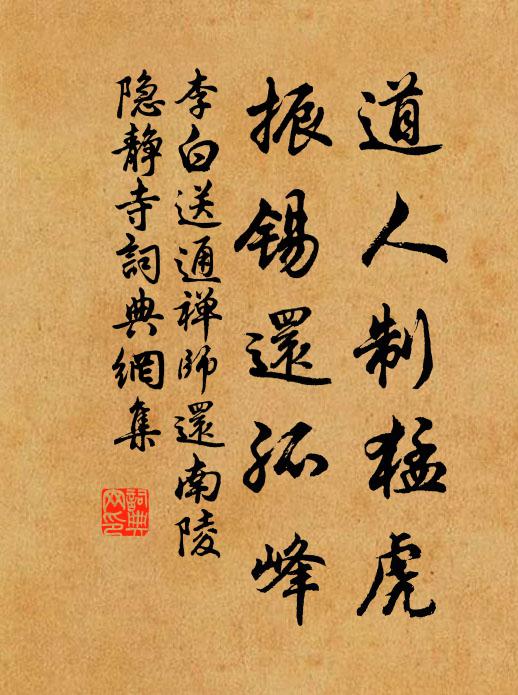 道人制猛虎
振锡還孤峰
李白送通禅師還南陵
隐静寺詞典網集
詞典
网印